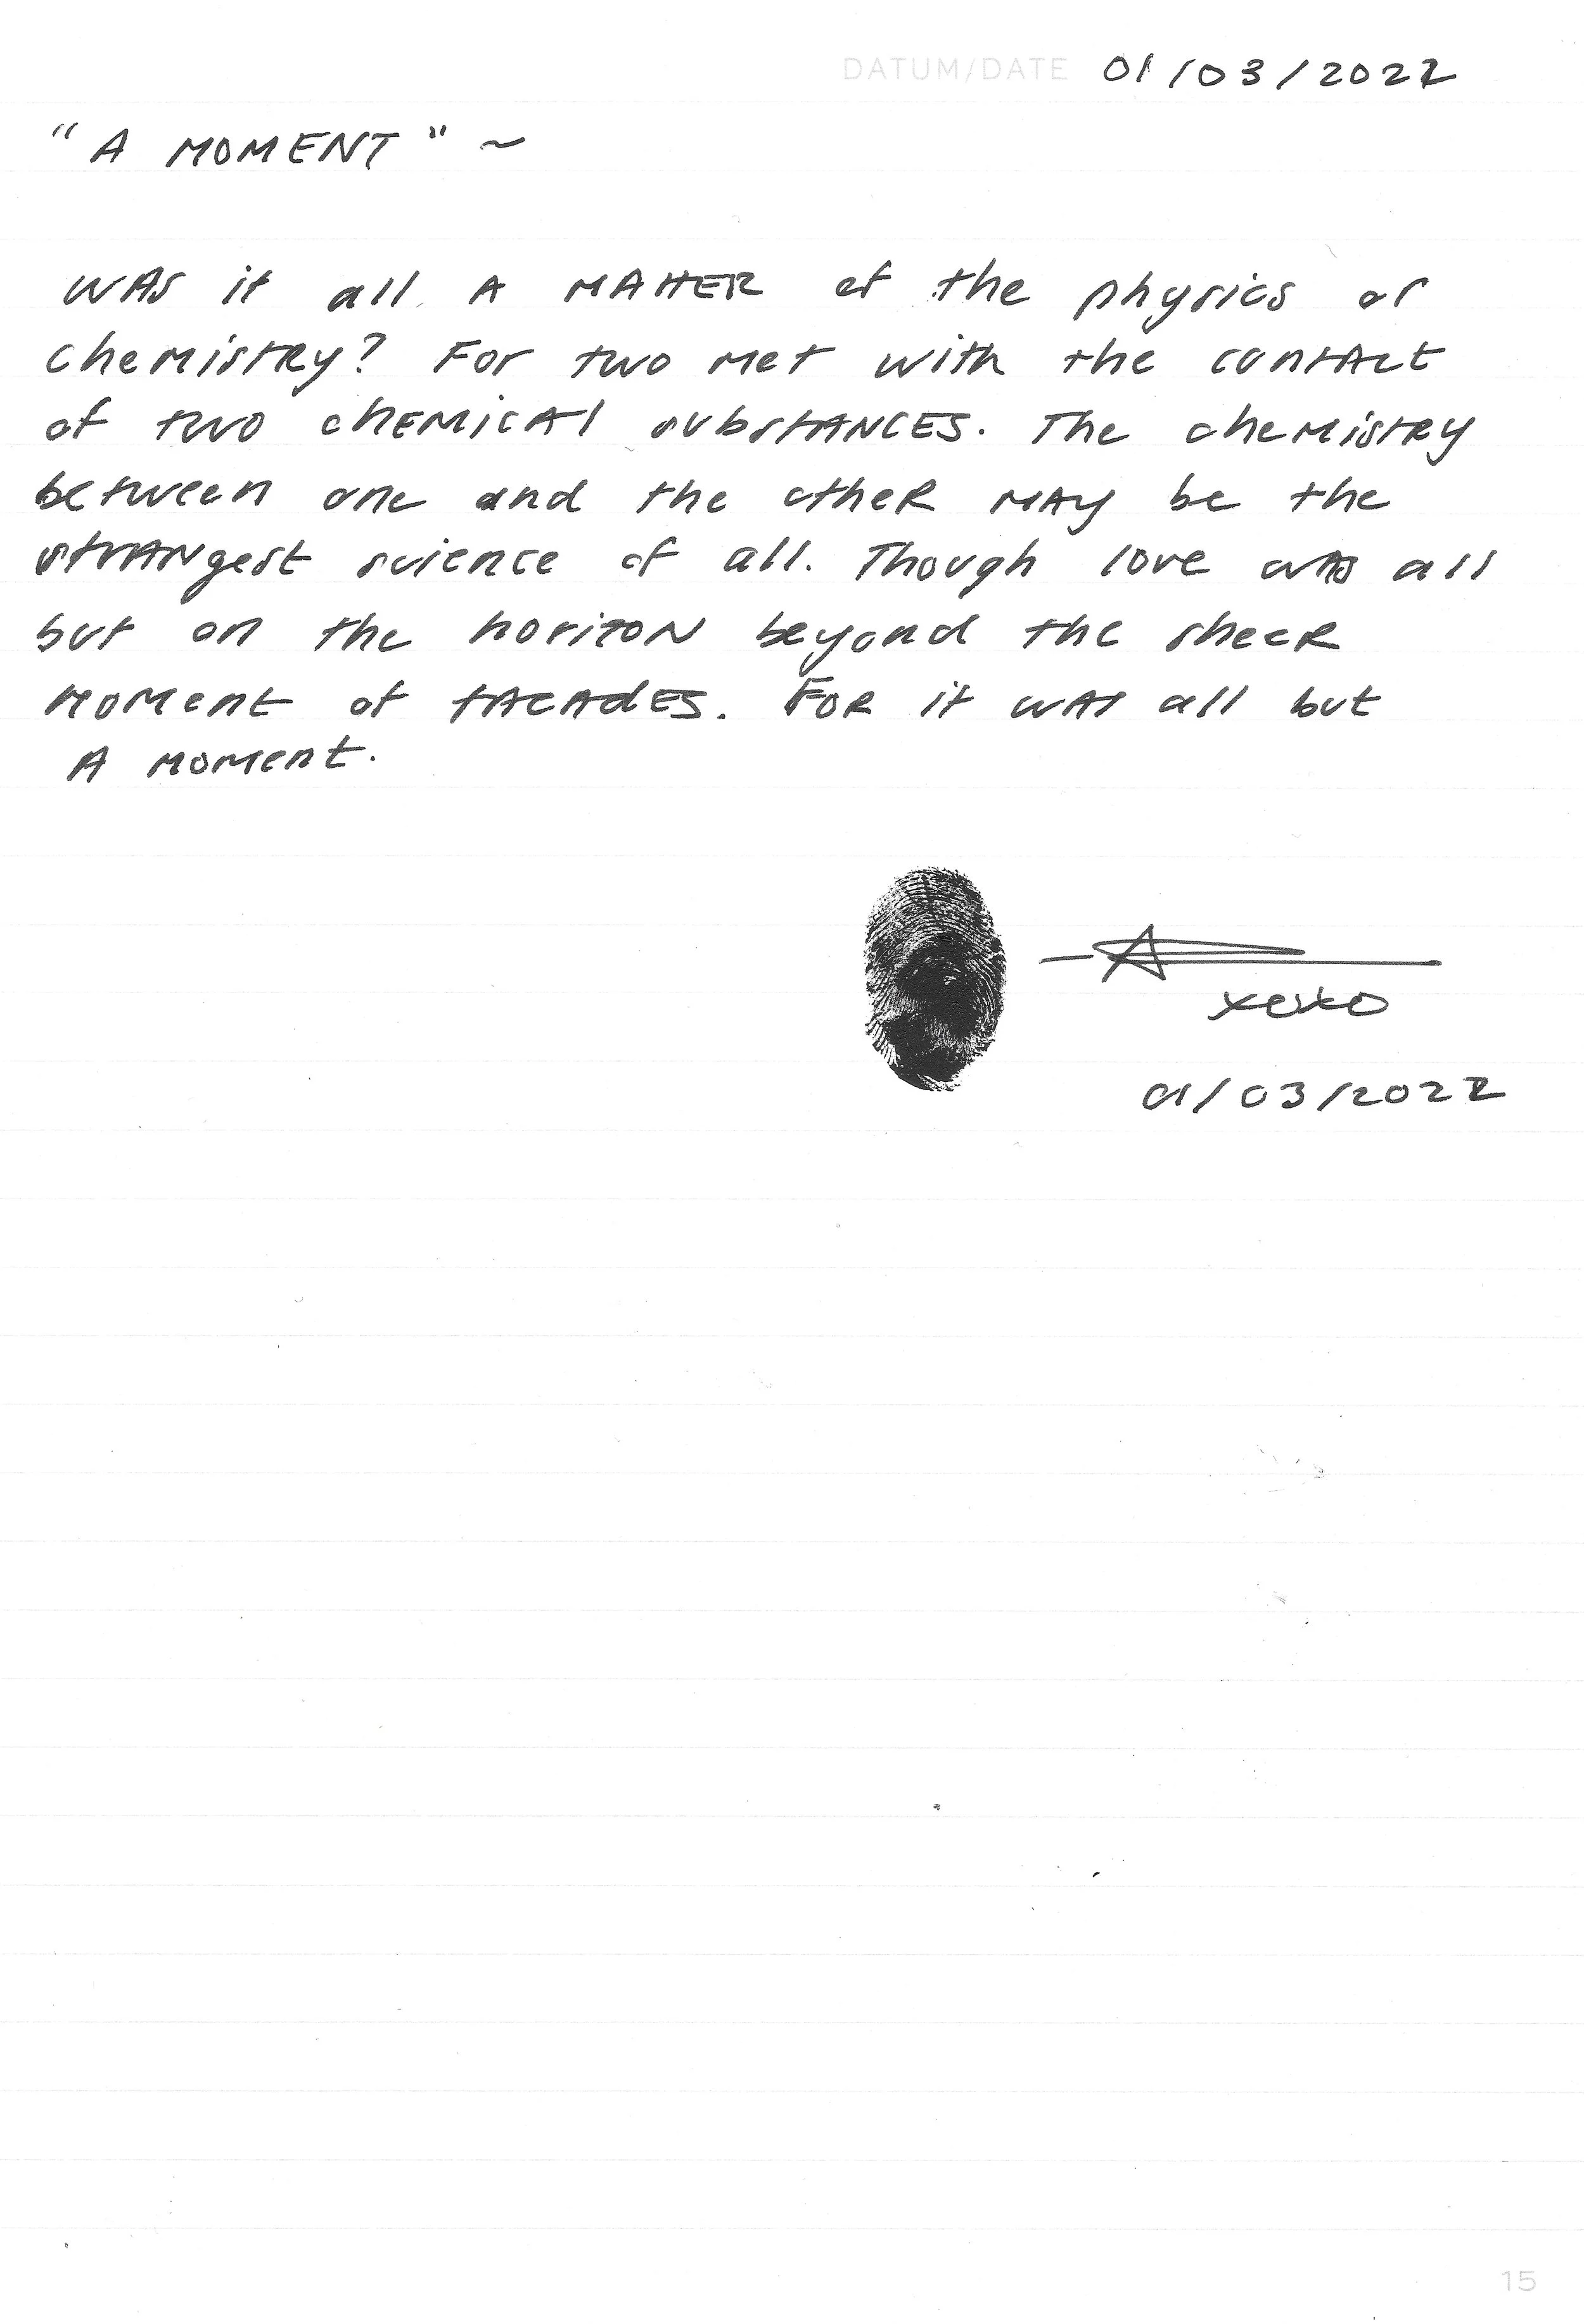 DATUM/DATE 01/03/2022
"A MOMENT" ~
WAS it all A MATTER of the physics or
chemistry? For two met with the contact
of two chemical substances. The chemistry
between one and the other may be the
strangest science of all. Though love was all
but on the horizon beyond the sheer
moment of facades. For it was all but
A moment.
01/03/2022
15